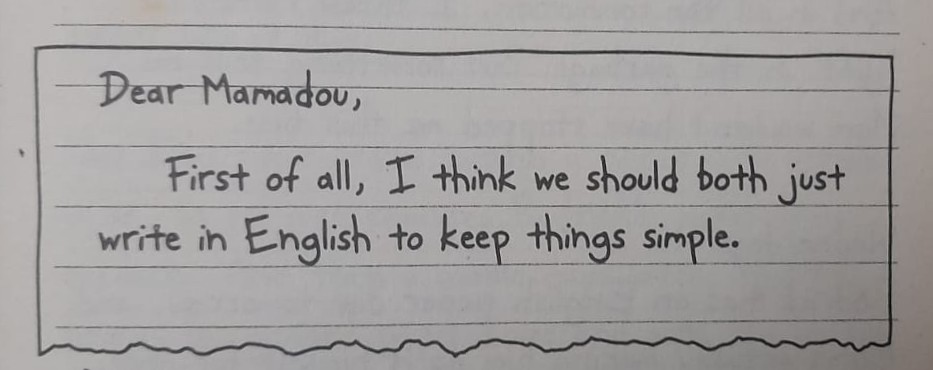 Dear Mamadou,
First of all, I think we should both just
write in English to keep things simple.